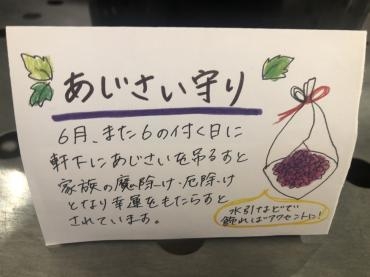 あじさい守り
6月、また6の付く日に
軒下にあじさいを吊るすと
家族の魔除け・厄除け
となり幸運をもたらすと
されています。
水引などで
飾ればアクセントに!